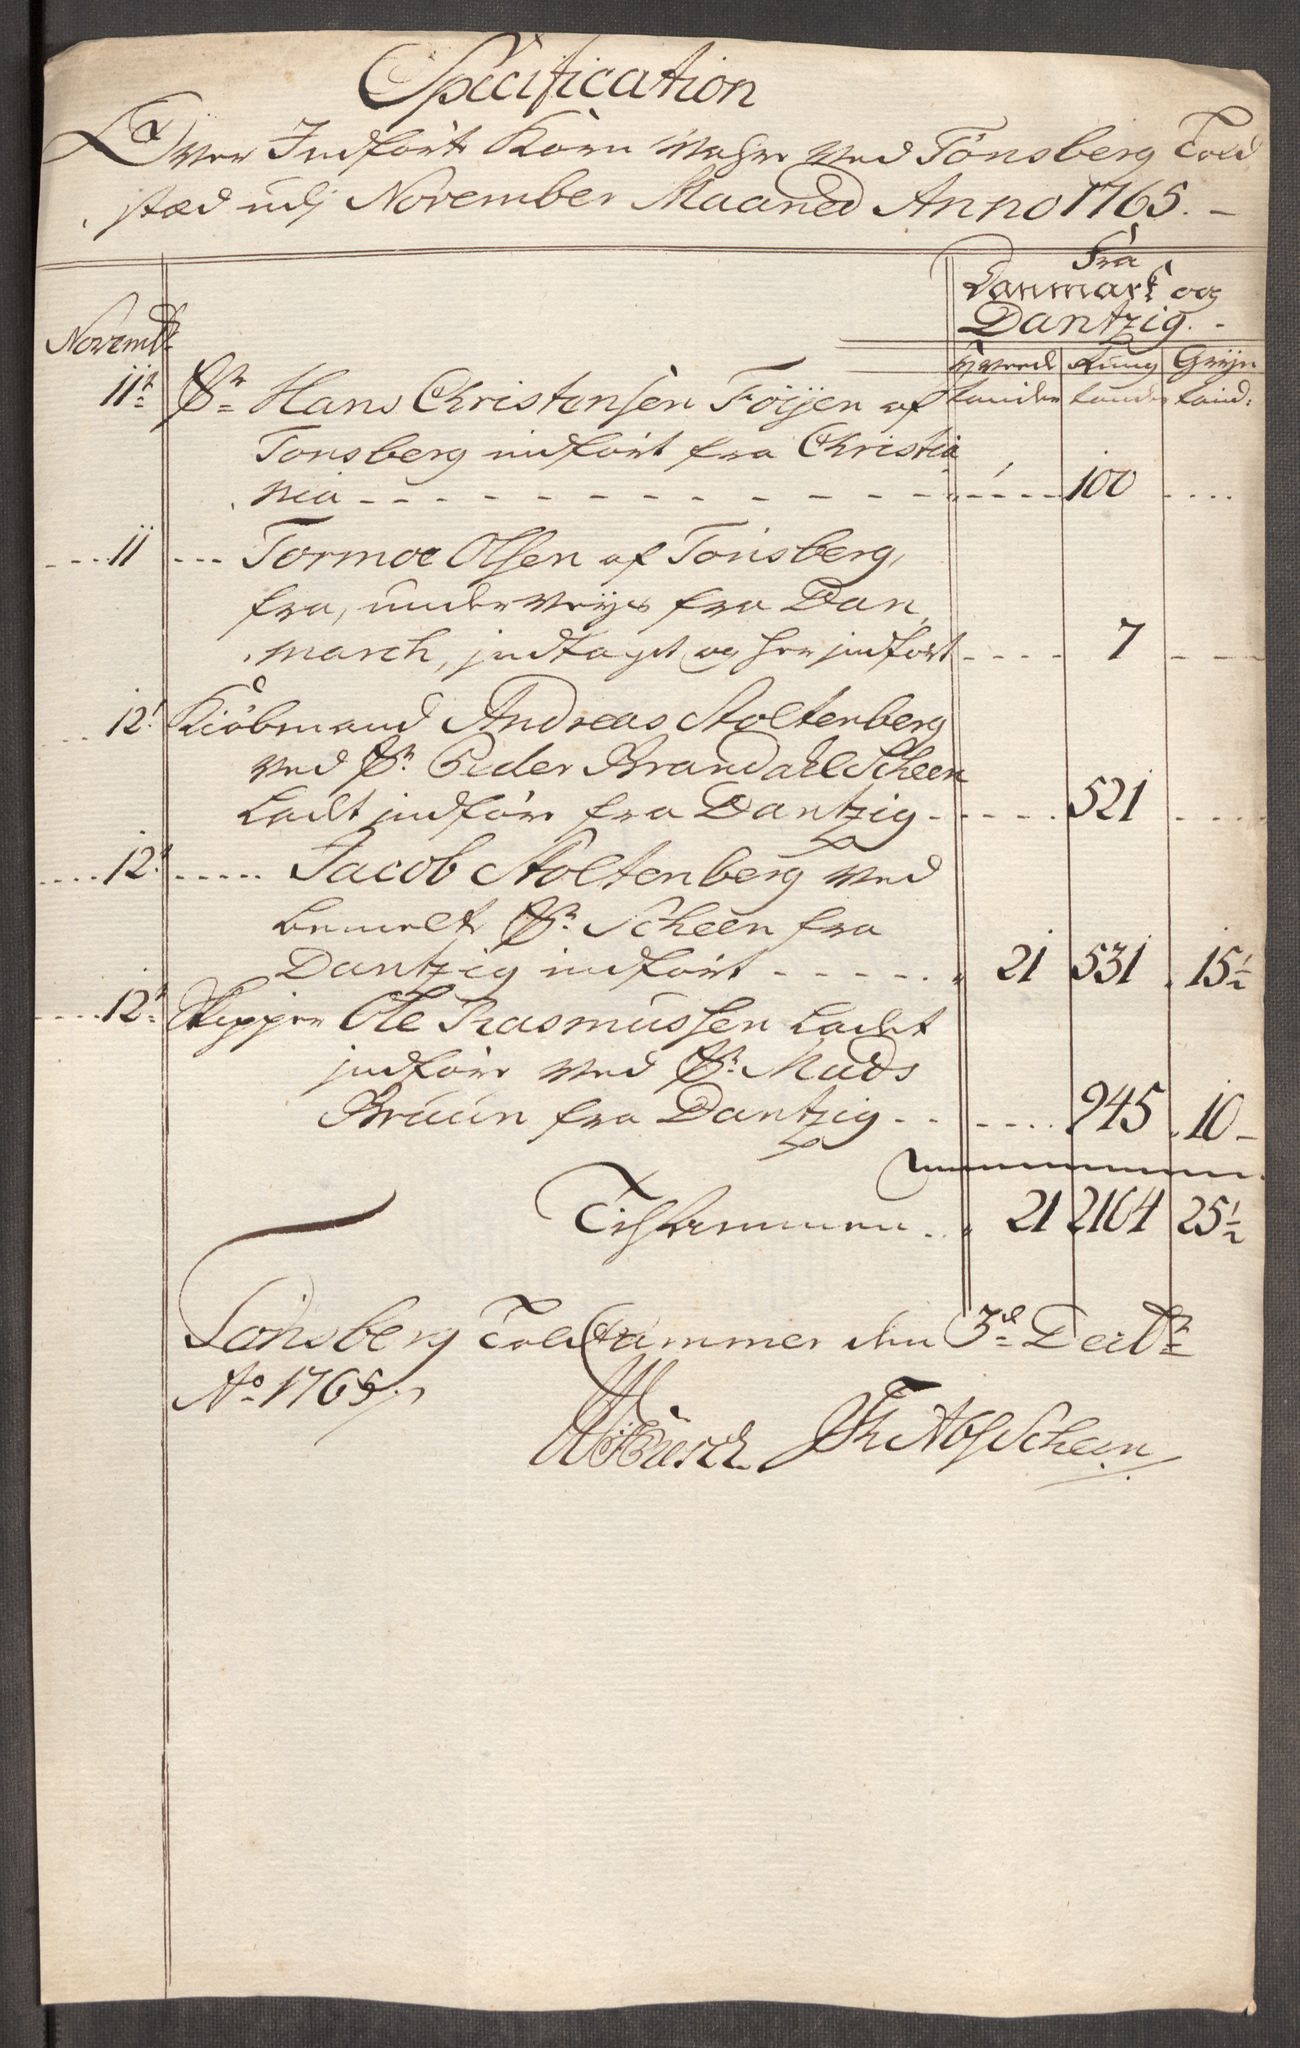 Specification
Over Indført Korn Vahre ved Tønsberg Told
stæd udj November Maaned Anno 1765.
Fra
Danmark og
Dantzig.
Novembr
Hveede Rung Gryn
Tønder Tønder Tønd:
11t Sr Hans Christensen Föÿen af
Tonsberg indført fra Christia
nia - - - 100
11 Tormoe Olsen af Tønsberg,
fra, underveys fra Dan
march, indtaget og her indført - - - 7
12t Kiøbmand Andreas Stoltenberg
ved Sr Peder Brandahl Scheen
Ladt indføre fra Dantzig - - - 521
12t Jacob Stoltenberg ved
bemelte Sr Scheen fra
Dantzig indført - - - 21 531 15½
12t Skipper Ole Rasmussen Ladet
indføre ved Sr Mads
Bruun fra Dantzig - - - 945 10
Tilsammen 21 2104 25½
Tønsberg Toldkammer den 3d Decbr
Ao 1765
Scheen